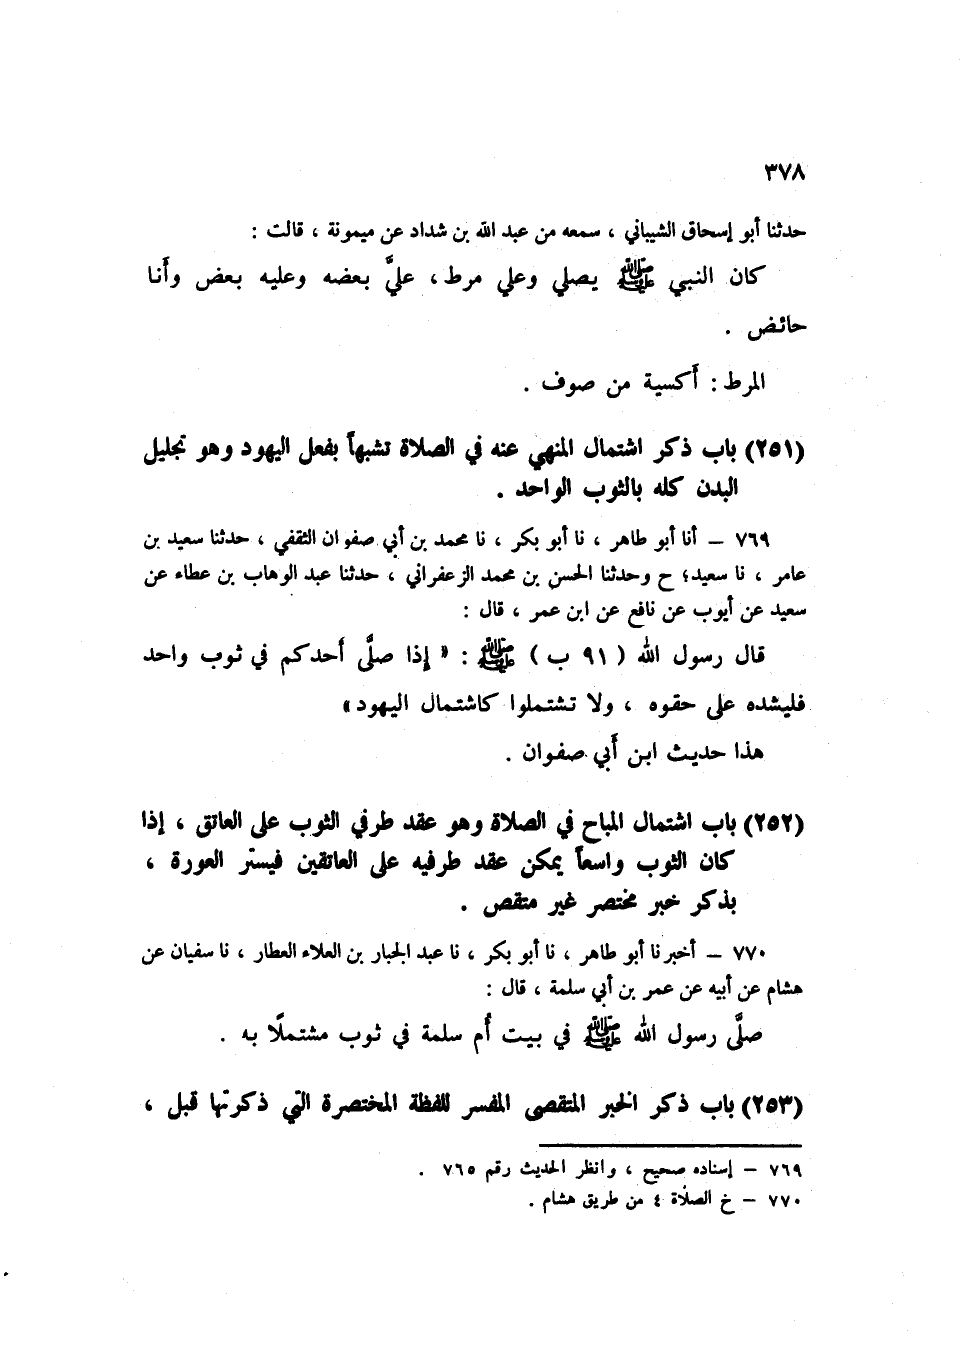 ٣٧٨
حدثنا أبو إسحاق الشيباني ، سمعه من عبد الله بن شداد عن ميمونة ، قالت :
كان النبي ﷺ يصلي وعلي مرط ، عليَّ بعضه وعليه بعض وأنا
حائض .
المرط : أكسية من صوف .
(٢٥١) باب ذكر اشتمال المنهي عنه في الصلاة تشبهاً بفعل اليهود وهو تجليل
البدن كله بالثوب الواحد .
٧٦٩ – أنا أبو طاهر ، نا أبو بكر ، نا محمد بن أبي صفوان الثقفي ، حدثنا سعيد بن
عامر ، نا سعيد؛ ح وحدثنا الحسن بن محمد الزعفراني ، حدثنا عبد الوهاب بن عطاء عن
سعيد عن أيوب عن نافع عن ابن عمر ، قال :
قال رسول الله ( ٩١ ب ) ﷺ : « إذا صلَّى أحدكم في ثوب واحد
فليشده على حقوه ، ولا تشتملوا كاشتمال اليهود »
هذا حديث ابن أبي صفوان .
(٢٥٢) باب اشتمال المباح في الصلاة وهو عقد طرفي الثوب على العاتق ، إذا
كان الثوب واسعاً يمكن عقد طرفيه على العاتقين فيستر العورة ،
بذكر خبر مختصر غير متقص .
٧٧٠ – أخبرنا أبو طاهر ، نا أبو بكر ، نا عبد الجبار بن العلاء العطار ، نا سفيان عن
هشام عن أبيه عن عمر بن أبي سلمة ، قال :
صلَّى رسول الله ﷺ في بيت أُم سلمة في ثوب مشتملًا به .
(٢٥٣) باب ذكر الخبر المتقصى المفسر للفظة المختصرة التي ذكرتها قبل ،
٧٦٩ – إسناده صحيح ، وانظر الحديث رقم ٧٦٥ .
٧٧٠ – خ الصلاة ٤ من طريق هشام .